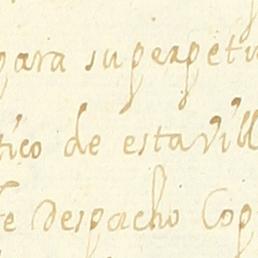 para superpetu
tico de estavill
te Despacho Cop